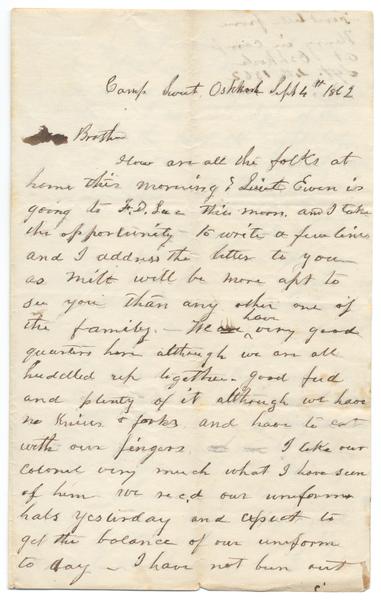 Camp Sweet, Oshkosh Sept 4th 1862
Brother
How are all the folks at
home this morning? Lieut Ewen is
going to F. D. Lac this noon and I take
the opportunity to write a few lines
and I address the letter to you
as Milt will be more apt to
see you than any other one of
the family. - We have very good
quarters here although we are all
huddled up together. good fud
and plenty of it although we have
no knives & forks and have to eat
with our fingers. I like our
colonel very much what I have seen
of him we rec,d our uniform
hats yesterday and expect to
get the balance of our uniform
to day - I have not been out